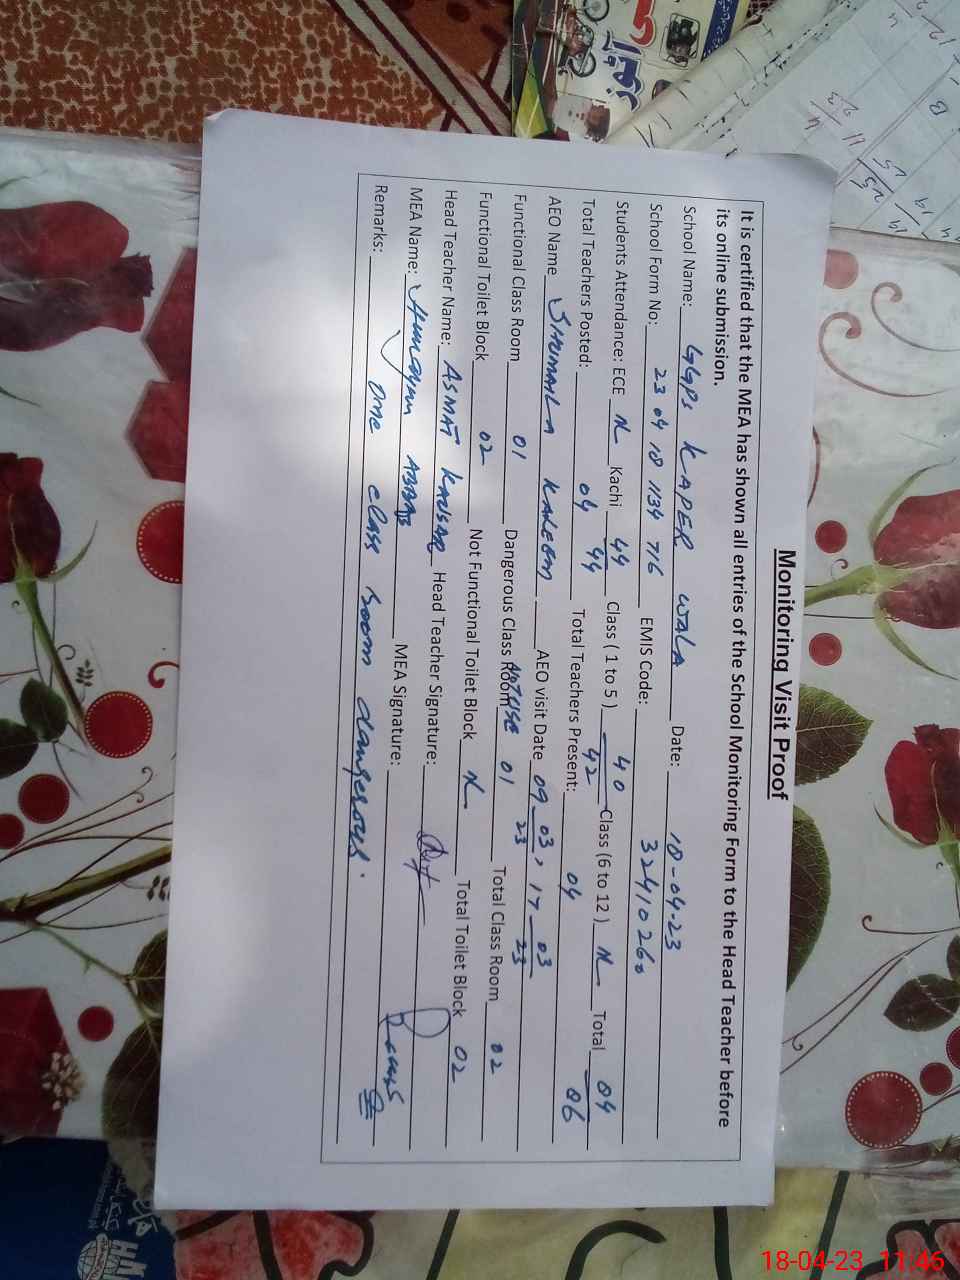 Monitoring Visit Proof
It is certified that the MEA has shown all entries of the School Monitoring Form to the Head Teacher before
its online submission.
School Name: GGPS KAPER WALA Date: 18-04-23
School Form No: 23 04 18 1134 716 EMIS Code: 32410260
Students Attendance: ECE N Kachi 44/44 Class ( 1 to 5 ) 40/42 Class (6 to 12 ) N Total 84/86
Total Teachers Posted: 04 Total Teachers Present: 04
AEO Name SHUMAILA KAREEM AEO visit Date 09 03/23, 17 03/23
Functional Class Room 01 Dangerous Class Room 01 Total Class Room 02
Functional Toilet Block 02 Not Functional Toilet Block N Total Toilet Block 02
Head Teacher Name: ASMAT KAUSAR Head Teacher Signature:
MEA Name: Humayun ABBAS MEA Signature:
Remarks: One class room dangerous.
18-04-23 11:46